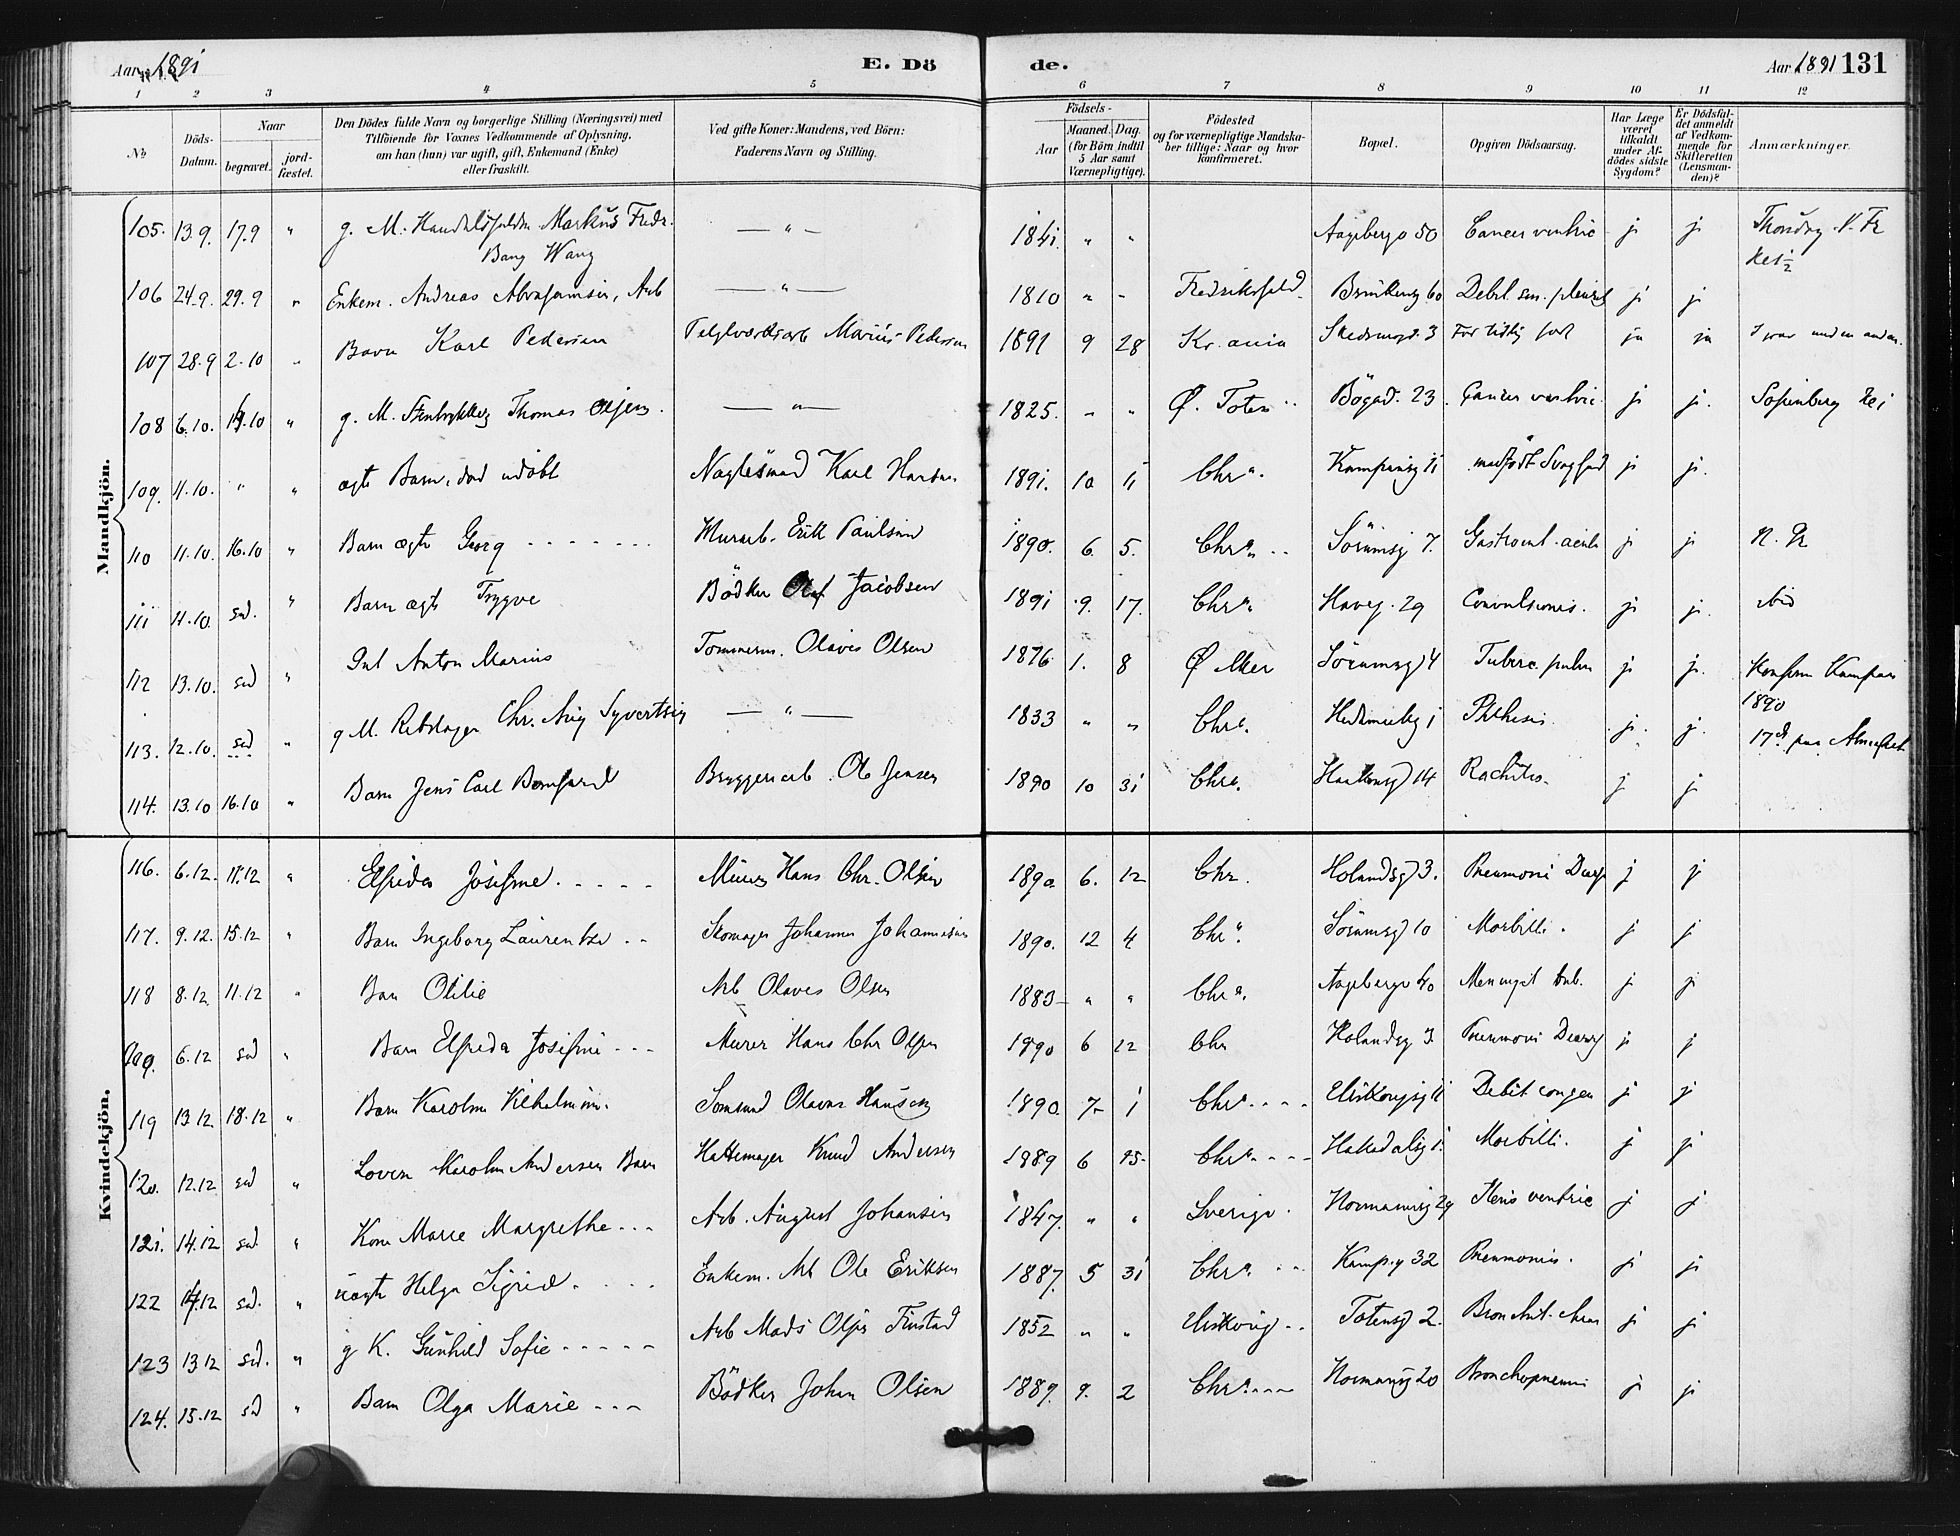 Aar 1891 E. Dö de. Aar 1891 131
1 2 3 4 5 6 7 8 9 10 11 12
No
Döds-Datum.
Naar
begravet.
jord-fæstet.
Den Dödes fulde Navn og borgerlige Stilling (Næringsvei) med
Tilföiende for Voxnes Vedkommende af Oplysning,
om han (hun) var ugift, gift, Enkemand (Enke)
eller fraskilt.
Ved gifte Koner: Mandens, ved Börn:
Faderens Navn og Stilling.
Födsels-
Aar
Maaned. Dag.
(for Börn indtil
5 Aar samt
Værnepligtige).
Födested
og for værnepligtige Mandska-
ber tillige: Naar og hvor
konfirmeret.
Bopæl.
Opgiven Dödsaarsag.
Har Læge
været
tilkaldt
under Af-
dödes sidste
Sygdom?
Er Dödsfal-
det anmeldt
af Vedkom-
mende for
Skifteretten
(Lensman-
den)?
Anmærkninger.
Mandkjön.
105. 13.9. 17.9 " g. M. Markus Fredr. — " — 1841. " " Aagebergv 50 Cancer ventric j j
Bang Wang
106 24.9. 29.9 " Enkem. Andreas Abrahamsen, Arb — " — 1810 " " 60 Debil. sen. j j
107 28.9 2.10 " Barn Karl Pedersen Teglværksarb Marius Pedersen 1891 9 28 Kr.ania 3 For tidlig født ja ja
108 6.10. 10 " g. M. Thomas Olsen. — " — 1825. " " Ø. Toten Bögad. 23. Cancer ventric. j j. Sofienberg
109. 11.10. " " ægte Barn, død udøbt Karl Hansen 1891. 10 11 Chra. Kampensg 11 medfødt Svaghed j j.
110 11.10. 16.10 " Barn ægte Georg Murarb. Erik Paulsen 1890. 6. 5. Chra. Sörumsg 7. j j
111 11.10. sd. " Barn ægte Trygve Bödker Olaf Jacobsen 1891 9. 17. Chra. Haveg. 29 Convulsiones. j j. ibid
112 13.10. sd " Anton Marius Tømmerm. Olaves Olsen 1876 1. 8 Ø Aker Sörumsg 4 Tuberc. pulm j j. Konfirm Kampen
1890
113. 12.10. sd " g M. Rebslager Chr. Aug Syvertsen — " — 1833 " " Chra. Hedemarksg 1 Phthisis. j. j.
114. 13.10 16.10 " Barn Jens Carl Bernhard Bryggeriarb. Ole Jensen 1890 10 31 Chra. 14 Rachitis. j j
Kvindekjön.
116. 6.12. 11.12 " Elfrida Josefine Murer Hans Chr. Olsen 1890. 6. 12 Chr. Holandsg 3. Pneumoni j j
117. 9.12. 15.12 " Barn Ingeborg Laurentze Skomager Johannes Johannesen 1890. 12 4 Chra. Sörumsg 10 Morbilli. j j
118 8.12. 11.12 " Barn Otilie Arb Olaves Olsen 1883 " " Chra. Aagebergv 40 Meningit tub. j j
6.12 sd " Barn Elfrida Josefine Murer Hans Chr Olsen 1890 6 12 Chr Holandsg 3 Pneumoni j j
119 13.12 18.12 " Barn Karoline Vilhelmine. Sömand Olavus Hansen 1890. 7 1 Chra. 11 Debil congen j j
120. 12.12 sd " Lovise Karoline Andersen Barn Hattemager Knud Andersen 1889 6 25 Chra. Hakadalsg 1. Morbilli. j j
121. 14.12 sd. " Kone Marie Margrethe Arb. August Johansen 1847. " " Sverige. Normannsg 29 ventric j j
122 12 sd. " uægte Helga Sigrid. Enkem. Arb Ole Eriksen 1887. 5 31 Chra. Kamp.g 32 Pneumonia. j j
123 13.12 sd. " g K. Gunhild Sofie Arb Mads Olsen Finstad 1852 " " Totensg 2. Bronchit. chron j j
124. 15.12 sd " Barn Olga Marie Bödker Johan Olsen 1889. 9. 2 Chra. Normannsg 20 Bronchopneumoni j j